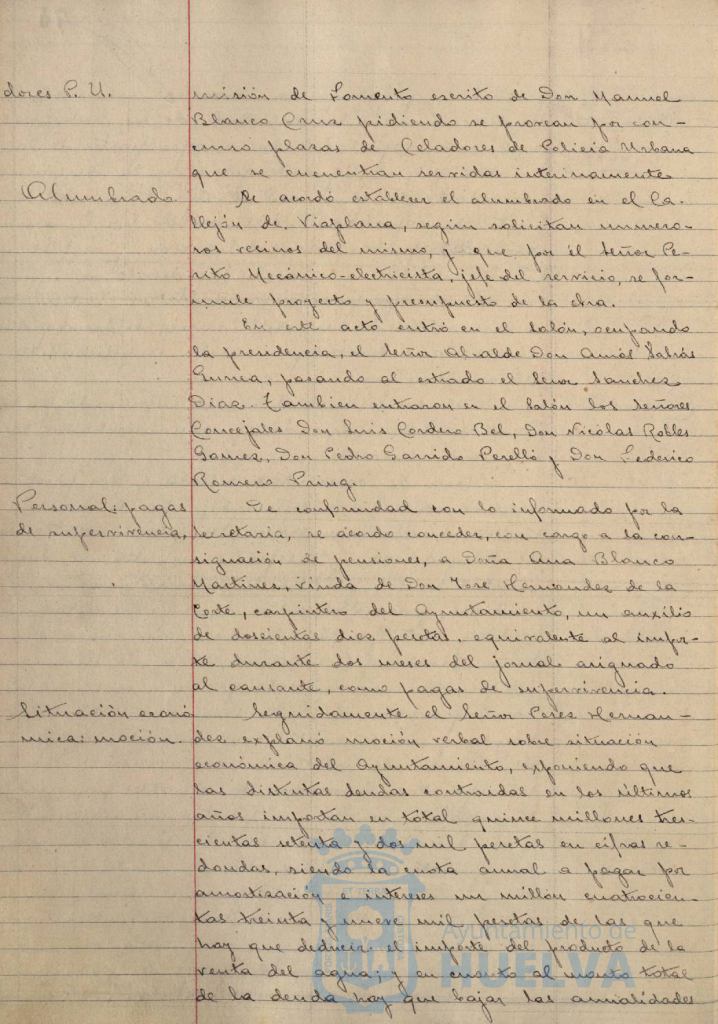 dores P. U.
misión de Fomento escrito de Don Manuel
Blanco Cruz pidiendo se provean por con-
curso plazas de Celadores de Policia Urbana
que se encuentran servidas interinamente
Alumbrado.
Se acordó establecer el alumbrado en el Ca-
llejón de Viaplana, segun solicitan numero-
sos vecinos del mismo, y que por el Señor Pe-
rito Mecánico-electricista, jefe del servicio, se for-
mule proyecto y presupuesto de la obra.
En este acto entró en el Salón, ocupando
la presidencia, el Señor Alcalde Don Amós Sabrás
Gurrea, pasando al estrado el Señor Sanchez
Diaz. Tambien entraron en el Salón los Señores
Concejales Don Luis Cordero Bel, Don Nicolas Robles
Gomez, Don Pedro Garrido Perelló y Don Federico
Romero
Personal: pagas
de supervivencia.
De conformidad con lo informado por la
Secretaria, se acordo conceder, con cargo a la con-
signación de pensiones, a Doña Ana Blanco
Martinez, viuda de Don Jose Hernandez de la
Corte, carpintero del Ayuntamiento, un auxilio
de doscientas diez pesetas, equivalente al impor-
te durante dos meses del jornal asignado
al causante, como pagas de supervivencia.
Situación econó
mica: moción.
Seguidamente el Señor Perez Hernan-
dez explanó moción verbal sobre situación
económica del Ayuntamiento, exponiendo que
las distintas deudas contraidas en los últimos
años importan en total quince millones tres-
cientas setenta y dos mil pesetas en cifras re-
dondas, siendo la cuota anual a pagar por
amortización e intereses un millón cuatrocien-
tas treinta y nueve mil pesetas de las que
hay que deducir el importe del producto de la
venta del agua; y en cuanto al monto total
de la deuda hay que bajar las anualidades
Ayuntamiento de
HUELVA